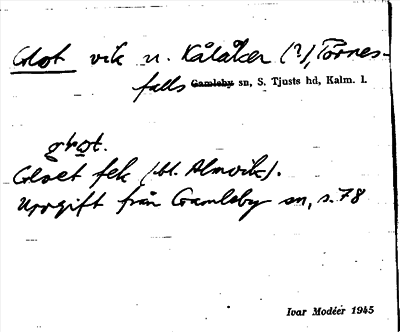 Glot vik n. Kålåker (?), Törnes-
falls Gamleby sn, S. Tjusts hd, Kalm. l.
glot.
Gloet fek (bl. Almvik).
Uppgift från Gamleby sn, s. 78
Ivar Modéer 1945